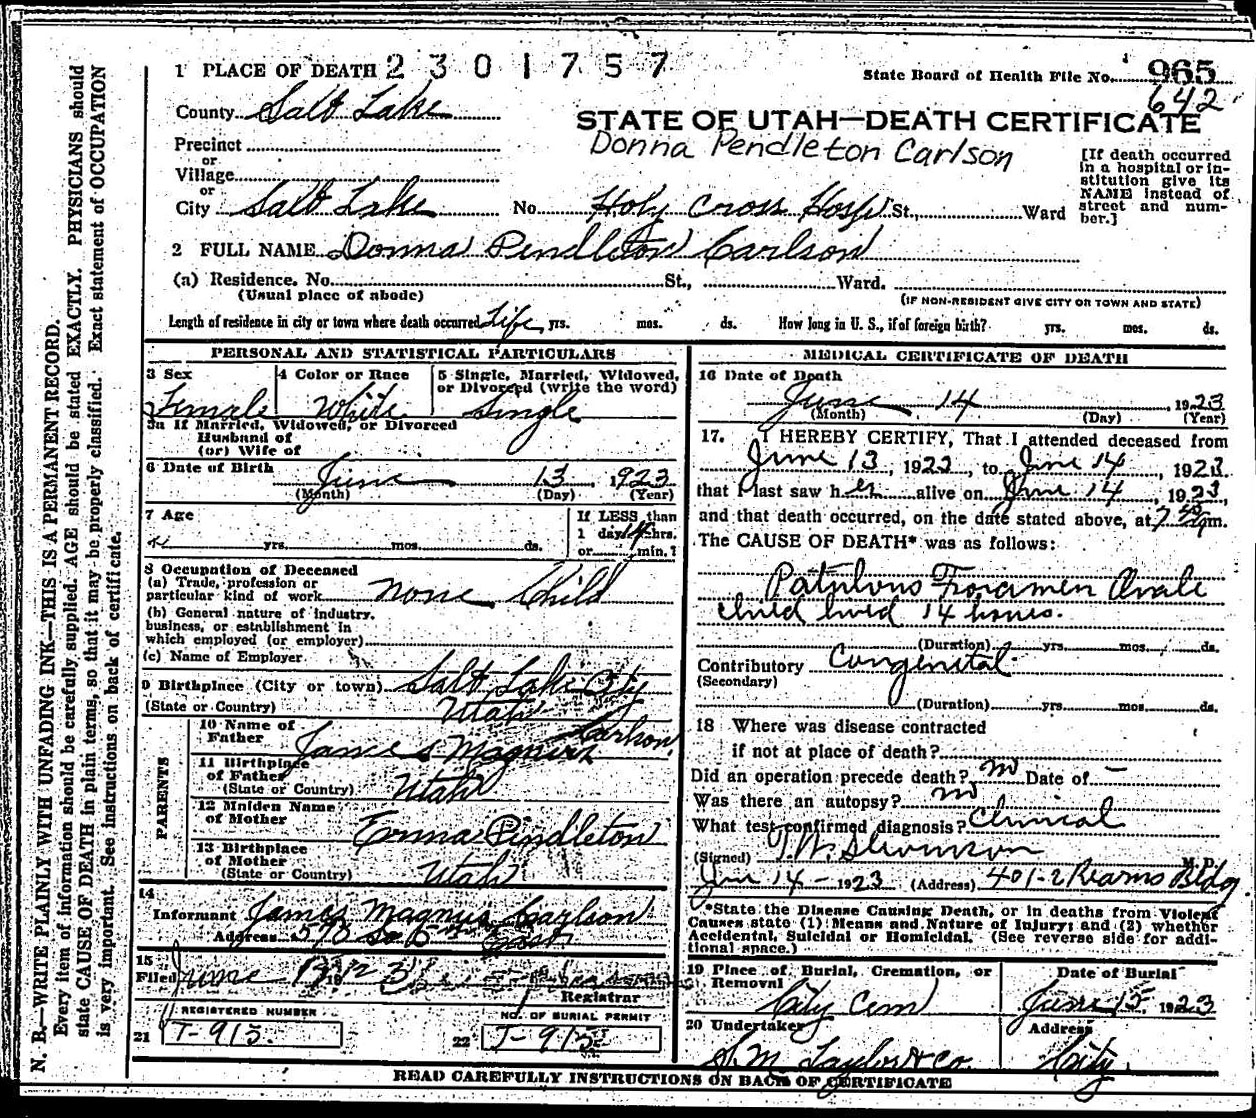 1 PLACE OF DEATH 2301757
State Board of Health File No. 965
642
County Salt Lake
STATE OF UTAH—DEATH CERTIFICATE
Donna Pendleton Carlson
Precinct
or
Village
or
City Salt Lake No. Holy Cross Hosp St., Ward
[If death occurred
in a hospital or in-
stitution give its
NAME instead of
street and num-
ber.]
2 FULL NAME Donna Pendleton Carlson
(a) Residence. No. St., Ward.
(Usual place of abode) (IF NON-RESIDENT GIVE CITY OR TOWN AND STATE)
Length of residence in city or town where death occurred Life yrs. mos. ds. How long in U. S., if of foreign birth? yrs. mos. ds.
PERSONAL AND STATISTICAL PARTICULARS
3 Sex Female
4 Color or Race White
5 Single, Married, Widowed,
or Divorced (write the word)
Single
5a If Married, Widowed, or Divorced
Husband of
(or) Wife of
6 Date of Birth June 13 1923
(Month) (Day) (Year)
7 Age yrs. mos. ds.
If LESS than
1 day 14 hrs.
or min.?
8 Occupation of Deceased
(a) Trade, profession or
particular kind of work none Child
(b) General nature of industry,
business, or establishment in
which employed (or employer)
(c) Name of Employer
9 Birthplace (City or town) Salt Lake City
(State or Country) Utah
PARENTS
10 Name of
Father James Magnus Carlson
11 Birthplace
of Father
(State or Country) Utah
12 Maiden Name
of Mother Emma Pendleton
13 Birthplace
of Mother
(State or Country) Utah
14
Informant James Magnus Carlson
Address So 5 East
15
Filed June 1923
Registrar
REGISTERED NUMBER
21 T-915.
NO. OF BURIAL PERMIT
22 T-915
MEDICAL CERTIFICATE OF DEATH
16 Date of Death
June 14, 1923
(Month) (Day) (Year)
17. I HEREBY CERTIFY, That I attended deceased from
June 13, 1923, to June 14, 1923
that I last saw her alive on June 14, 1923,
and that death occurred, on the date stated above, at 7 45 a m.
The CAUSE OF DEATH* was as follows:
Patulous Foramen Ovale
child lived 14 hours.
(Duration) yrs. mos. ds.
Contributory Congenital
(Secondary)
(Duration) yrs. mos. ds.
18 Where was disease contracted
if not at place of death?
Did an operation precede death? no Date of —
Was there an autopsy? no
What test confirmed diagnosis? Clinical
(Signed) M. D.
June 14 - 1923 (Address) 401-2 Kearns Bldg
*State the Disease Causing Death, or in deaths from Violent
Causes state (1) Means and Nature of Injury; and (2) whether
Accidental, Suicidal or Homicidal. (See reverse side for addi-
tional space.)
19 Place of Burial, Cremation, or
Removal
City Cem
Date of Burial
June 15, 1923
20 Undertaker
S. M. Taylor & Co.
Address
City
READ CAREFULLY INSTRUCTIONS ON BACK OF CERTIFICATE
N. B.—WRITE PLAINLY WITH UNFADING INK—THIS IS A PERMANENT RECORD.
Every item of information should be carefully supplied. AGE should be stated EXACTLY. PHYSICIANS should
state CAUSE OF DEATH in plain terms, so that it may be properly classified. Exact statement of OCCUPATION
is very important. See instructions on back of certificate.